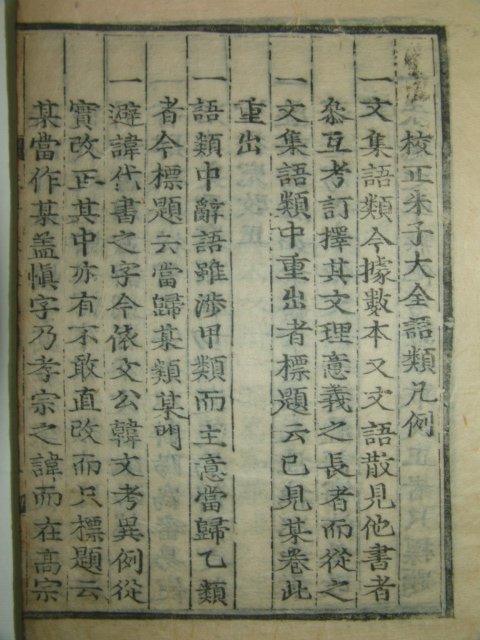 校正朱子大全語類凡例
一文集語類今據數本又文語散見他書者
叅互考訂擇其文理意義之長者而從之
一文集語類中重出者標題云已見某卷此
重出
一語類中辭語雖渉甲類而主意當歸乙類
者今標題云當歸某類某門
一避諱代書之字今依文公韓文考異例從
實改正其中亦有不敢直改而只標題云
某當作某盖愼字乃孝宗之諱而在高宗